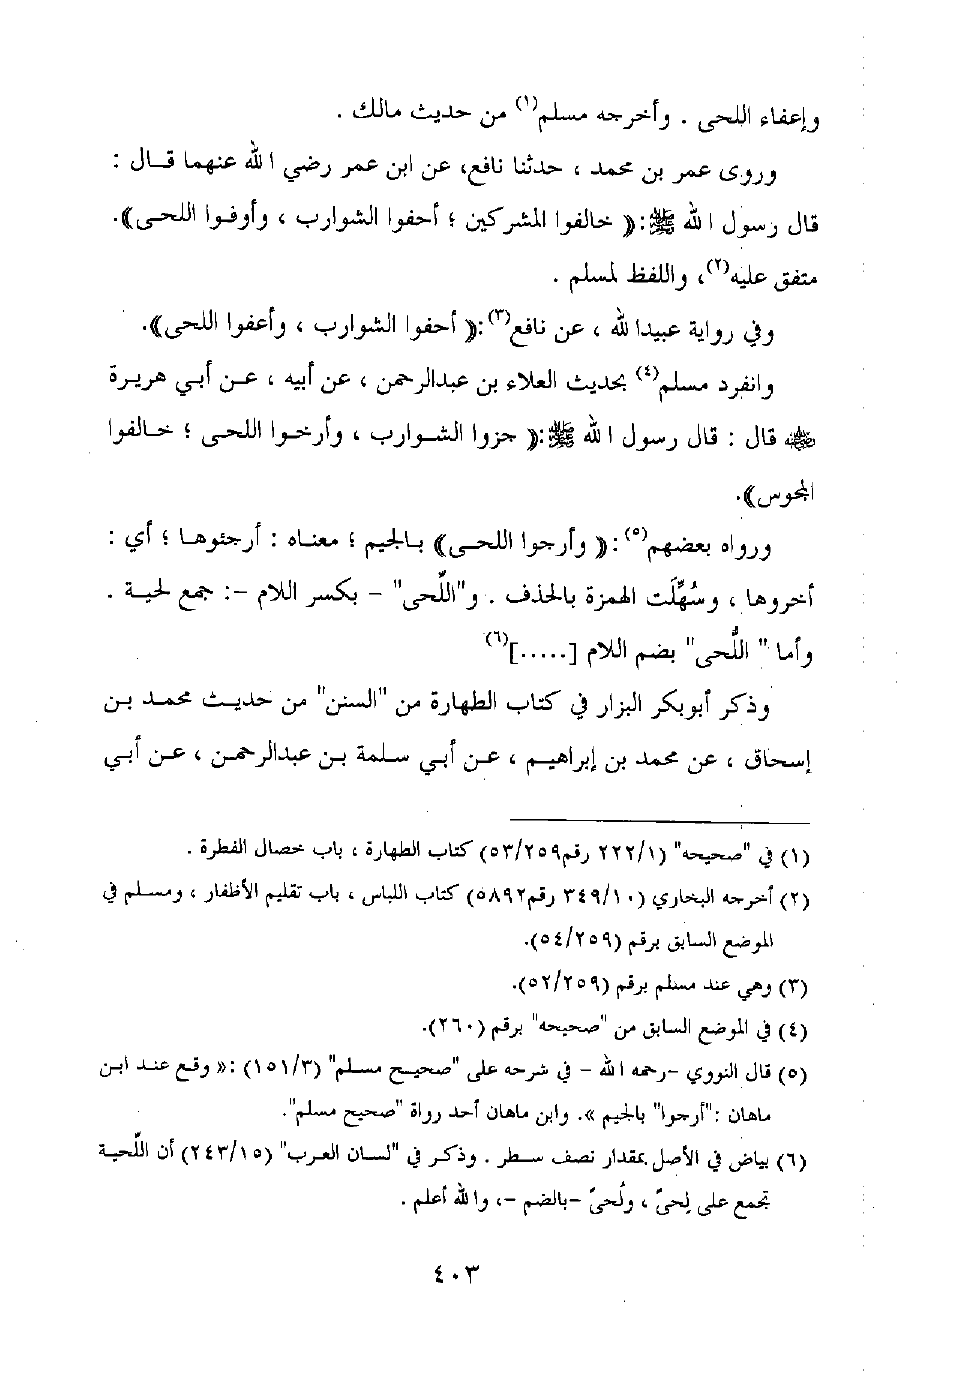 وإعفاء اللحى . وأخرجه مسلم(١) من حديث مالك .
وروى عمر بن محمد ، حدثنا نافع، عن ابن عمر رضي الله عنهما قال :
قال رسول الله ﷺ:(( خالفوا المشركين ؛ أحفوا الشوارب ، وأوفوا اللحى)).
متفق عليه(٢)، واللفظ لمسلم .
وفي رواية عبيدالله ، عن نافع(٣):(( أحفوا الشوارب ، وأعفوا اللحى)).
وانفرد مسلم(٤) بحديث العلاء بن عبدالرحمن ، عن أبيه ، عن أبي هريرة
رضي الله عنه قال : قال رسول الله ﷺ:(( جزوا الشوارب ، وأرخوا اللحى ؛ خالفوا
المجوس)).
ورواه بعضهم(٥):(( وأرجوا اللحى)) بالجيم ؛ معناه : أرجئوها ؛ أي :
أخروها ، وسُهِّلَت الهمزة بالحذف . و"اللِّحى" - بكسر اللام -: جمع لحية .
وأما " اللُّحى" بضم اللام [.....](٦)
وذكر أبوبكر البزار في كتاب الطهارة من "السنن" من حديث محمد بن
إسحاق ، عن محمد بن إبراهيم ، عن أبي سلمة بن عبدالرحمن ، عن أبي
(١) في "صحيحه" (٢٢٢/١ رقم٥٣/٢٥٩) كتاب الطهارة ، باب خصال الفطرة .
(٢) أخرجه البخاري (٣٤٩/١٠ رقم٥٨٩٢) كتاب اللباس ، باب تقليم الأظفار ، ومسلم في
الموضع السابق برقم (٥٤/٢٥٩).
(٣) وهي عند مسلم برقم (٥٢/٢٥٩).
(٤) في الموضع السابق من "صحيحه" برقم (٢٦٠).
(٥) قال النووي -رحمه الله - في شرحه على "صحيح مسلم" (١٥١/٣) :« وقع عند ابن
ماهان :"أرجوا" بالجيم ». وابن ماهان أحد رواة "صحيح مسلم".
(٦) بياض في الأصل بمقدار نصف سطر . وذكر في "لسان العرب" (٢٤٣/١٥) أن اللِّحية
تجمع على لِحىً ، ولُحىً -بالضم -، والله أعلم .
٤٠٣